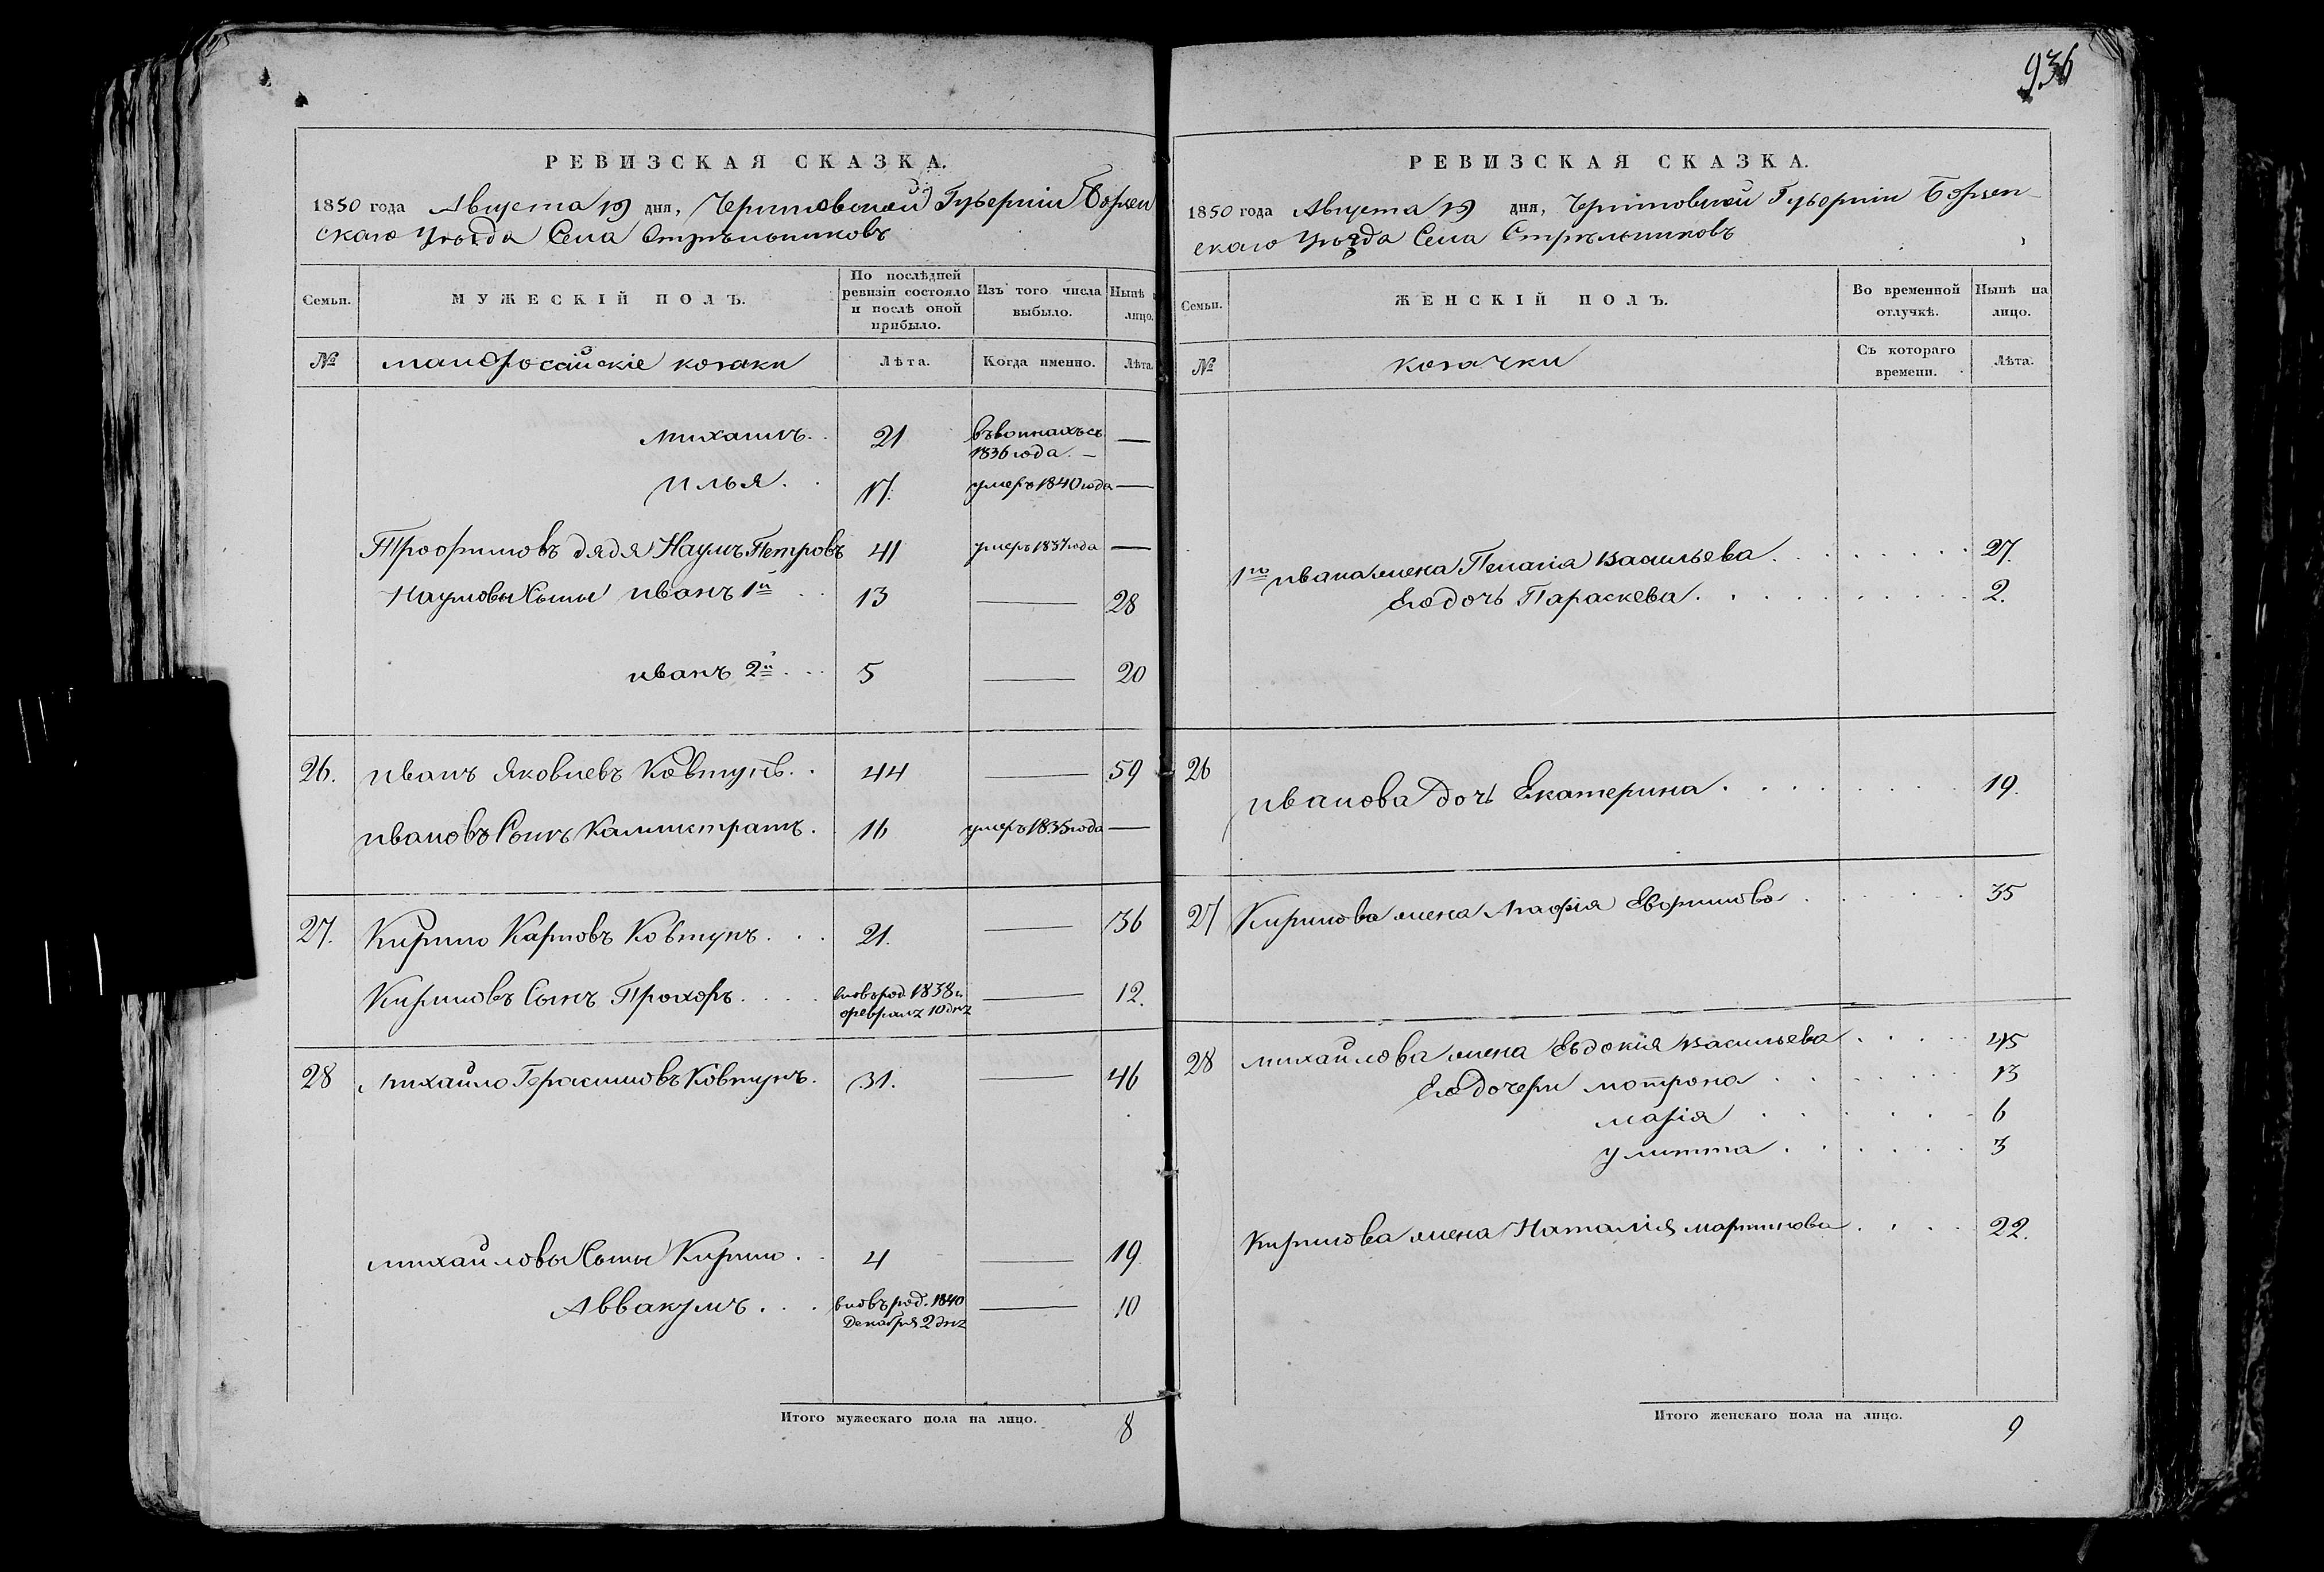 936
РЕВИЗСКАЯ СКАЗКА.
1850 года Августа 19 дня, Черниговской Губернiи Борзен
скаго Уѣзда Села Стрѣльниковъ
Семьи.
МУЖЕСКIЙ ПОЛЪ.
По послѣдней ревизiи состояло и послѣ оной прибыло.
Изъ того числа выбыло.
Нынѣ лицо.
№
малоросiйскiе козаки
Лѣта.
Когда именно.
Лѣта.
Михаилъ. 21 въ воинахъ съ 1836 года. —
Илья. 17. умеръ 1840 года —
Трофимовъ дядя Наумъ Петровъ 41 умеръ 1837 года —
Наумовы Сыны Иванъ 1й 13 — 28
Иванъ 2й 5 — 20
26. Иванъ Яковлевъ Ковтунъ. 44 — 59
Ивановъ Сынъ Каллистратъ. 16 умеръ 1835 года —
27. Кирило Карповъ Ковтунъ. 21. — 36
Кириловъ Сынъ Прохоръ. вновь род. 1838 г. февраля 10 дня — 12.
28 Михайло Герасимовъ Ковтунъ. 31. — 46
Михайловы Сыны Кирило. 4 — 19.
Аввакумъ. вновь род. 1840 Декабря 2 дня — 10
Итого мужескаго пола на лицо. 8
РЕВИЗСКАЯ СКАЗКА.
1850 года Августа 19 дня, Черниговской Губернiи Борзен
скаго Уѣзда Села Стрѣльниковъ
Семьи.
ЖЕНСКIЙ ПОЛЪ.
Во временной отлучкѣ.
Нынѣ на лицо.
№
козачки
Съ котораго времени.
Лѣта.
1го Ивана жена Пелагiя Васильева. 27.
Его дочь Параскева. 2.
26 Иванова дочь Екатерина. 19.
27 Кирилова жена Агафiя Ефимова 35
28 Михайлова жена Евдокiя Васильева 45
Его дочери Мотрона 13
Марiя 6
Улитта. 3
Кирилова жена Наталiя Мартинова 22.
Итого женскаго пола на лицо. 9